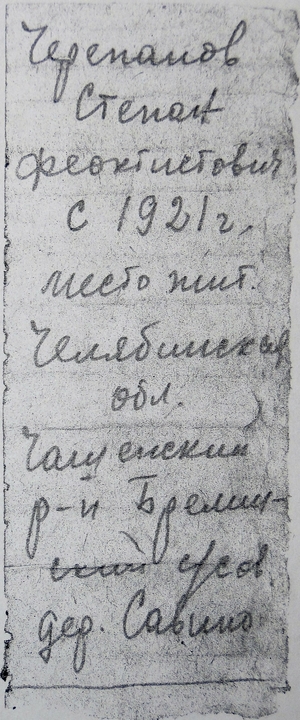 Черепанов
Степан
Феоктистович
с 1921 г.
место жит.
Челябинская
обл.
Чащенский
р-н Брелин-
ский с/сов.
дер. Савино